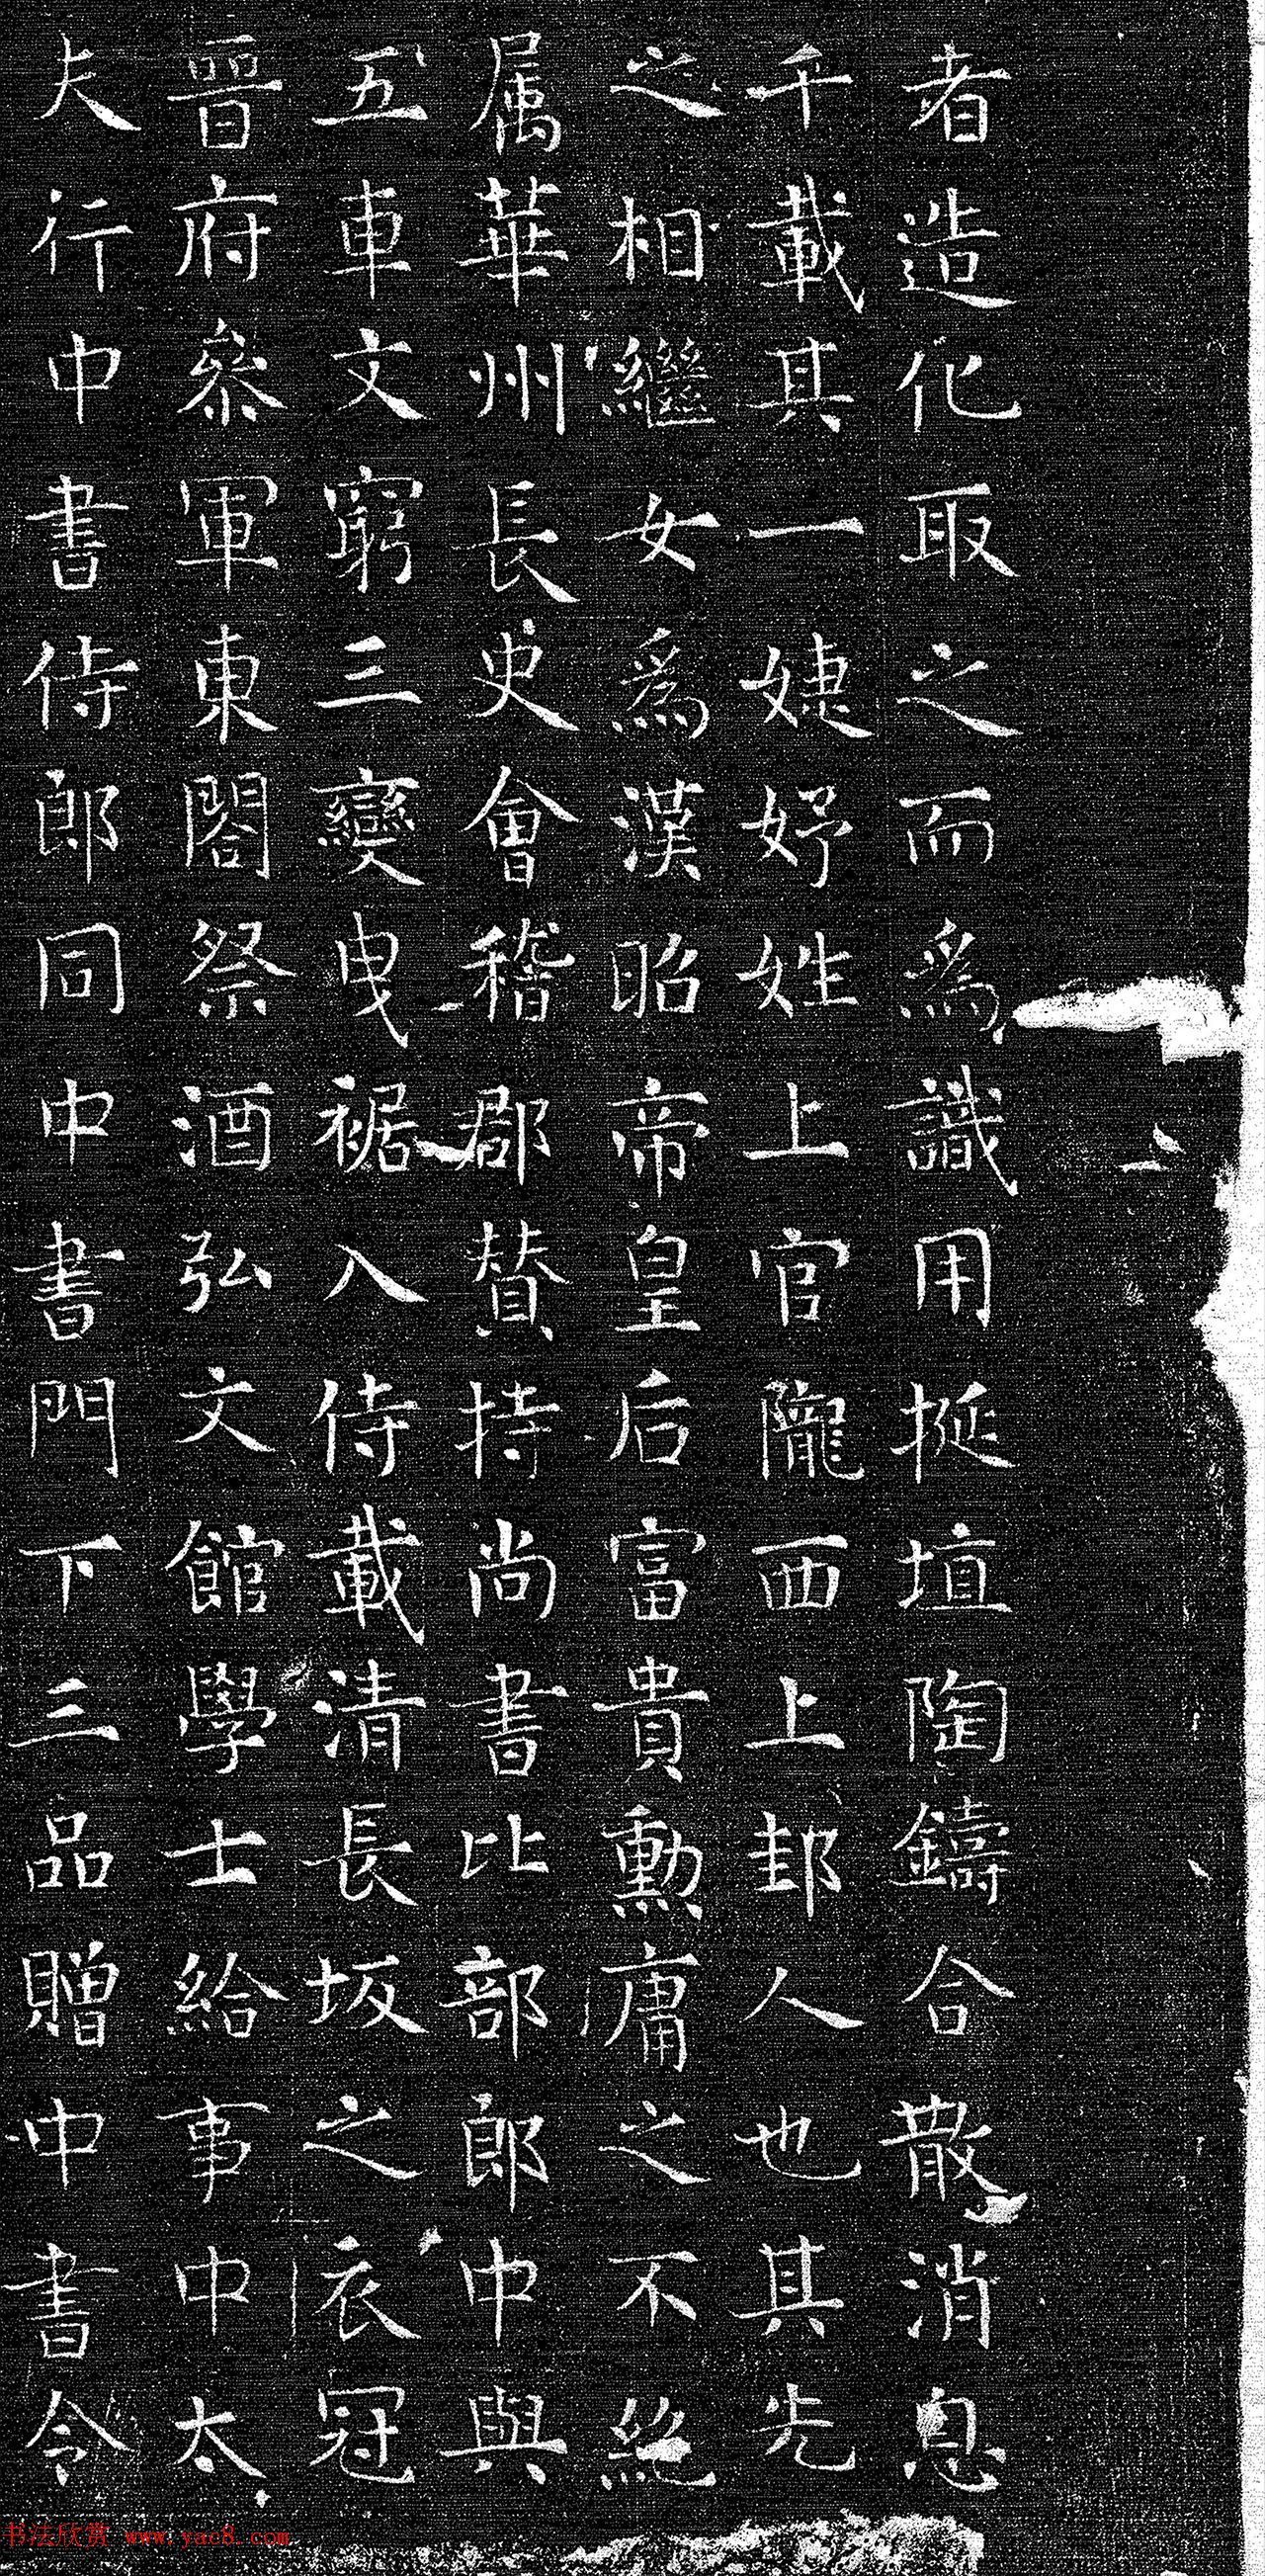 者造化取之而爲識用挻埴陶鑄合散消息
千載其一婕妤姓上官隴西上邽人也其先
之相繼女爲漢昭帝皇后富貴勳庸之不絕
属華州長史會稽郡賛持尚書比部郎中與
五車文窮三變曳裾入侍載清長坂之衣冠
晉府叅軍東閤祭酒弘文館學士給事中太
夫行中書侍郎同中書門下三品贈中書令
书法欣赏 www.yac8.com